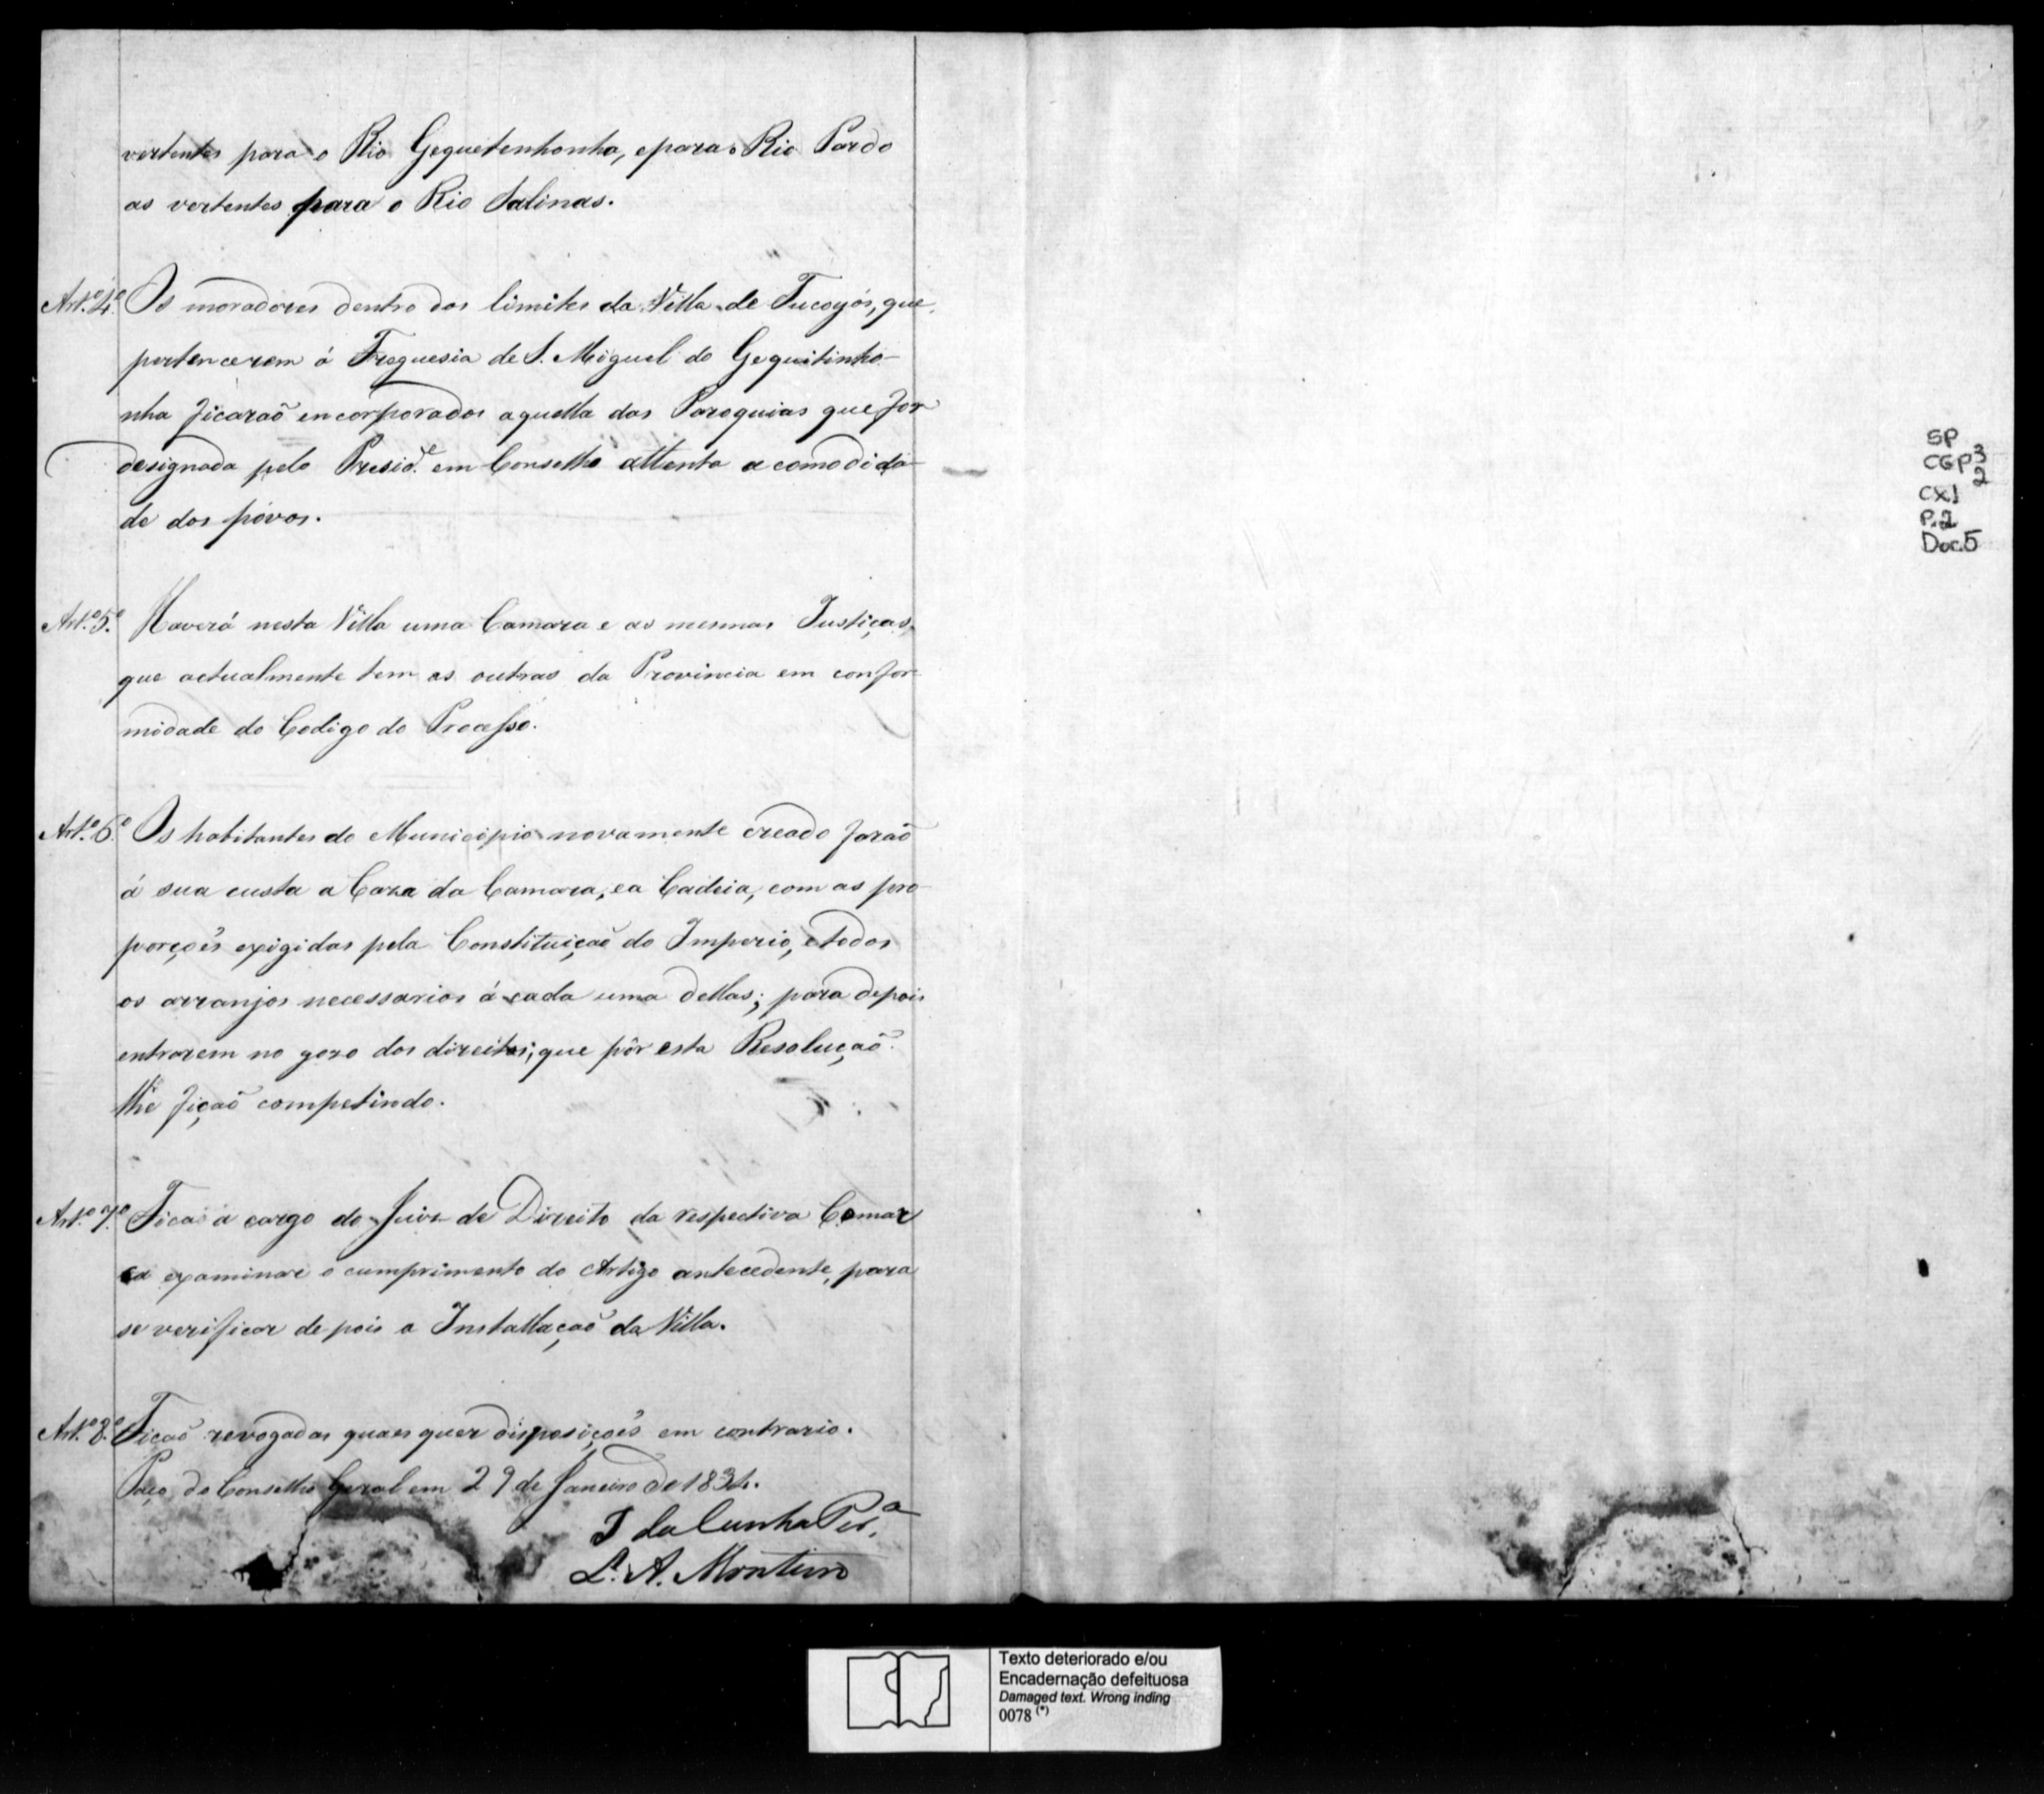 vertentes para o Rio Gequetenhonha, epara o Rio Pardo
as vertentes para o Rio Salinas.
Art.º 4.º Os moradores dentro dos limites da Villa de Tucoyós, que
pertencerem á Freguesia de S. Miguel do Gequitinho-
nha ficaraõ encorporados aquella das Paroquias que for
designada pelo Presid.e em Conselho attenta a comodida-
de dos póvos.
Art.º 5.º Haverá nesta Villa uma Camara e as mesmas Justiças,
que actualmente tem as outras da Provincia em confor-
midade do Codigo do Processo.
Art.º 6.º Os habitantes do Municipio novamente creado faraõ
á sua custa a Caza da Camara, ea Cadeia, com as pro-
porçoẽs exigidas pela Constituiçaõ do Imperio, etodos
os arranjos necessarios á cada uma dellas; para depois
entrarem no gozo dos direitos, que pôr esta Resoluçaõ
lhe ficaõ competindo.
Art.º 7.º Fica a cargo do Juiz de Direito da respectiva Comar
ca examinar o cumprimento do Artigo antecedente, para
se verificar depois a Installaçaõ da Villa.
Art.º 8.º Ficaõ revogadas quaes quer disposiçoẽs em contrario.
Paço do Conselho Geral em 29 de Janeiro de 1834.
J da Cunha Per.a
L. A. Monteiro
SP
CGP 3
2
CX1
P.2
Doc.5
Texto deteriorado e/ou
Encadernação defeituosa
Damaged text. Wrong inding
0078 (*)